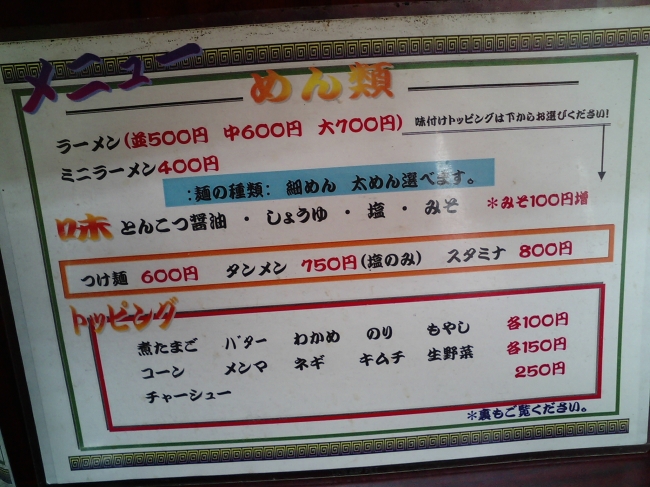 メニュー
めん類
ラーメン(並500円 中600円 大700円)
味付けトッピングは下からお選びください!
ミニラーメン400円
:麺の種類: 細めん 太めん選べます。
味 とんこつ醤油 ・ しょうゆ ・ 塩 ・ みそ
*みそ100円増
つけ麺 600円 タンメン 750円(塩のみ) スタミナ 800円
トッピング
煮たまご バター わかめ のり もやし 各100円
コーン メンマ ネギ キムチ 生野菜 各150円
チャーシュー 250円
*裏もご覧ください。